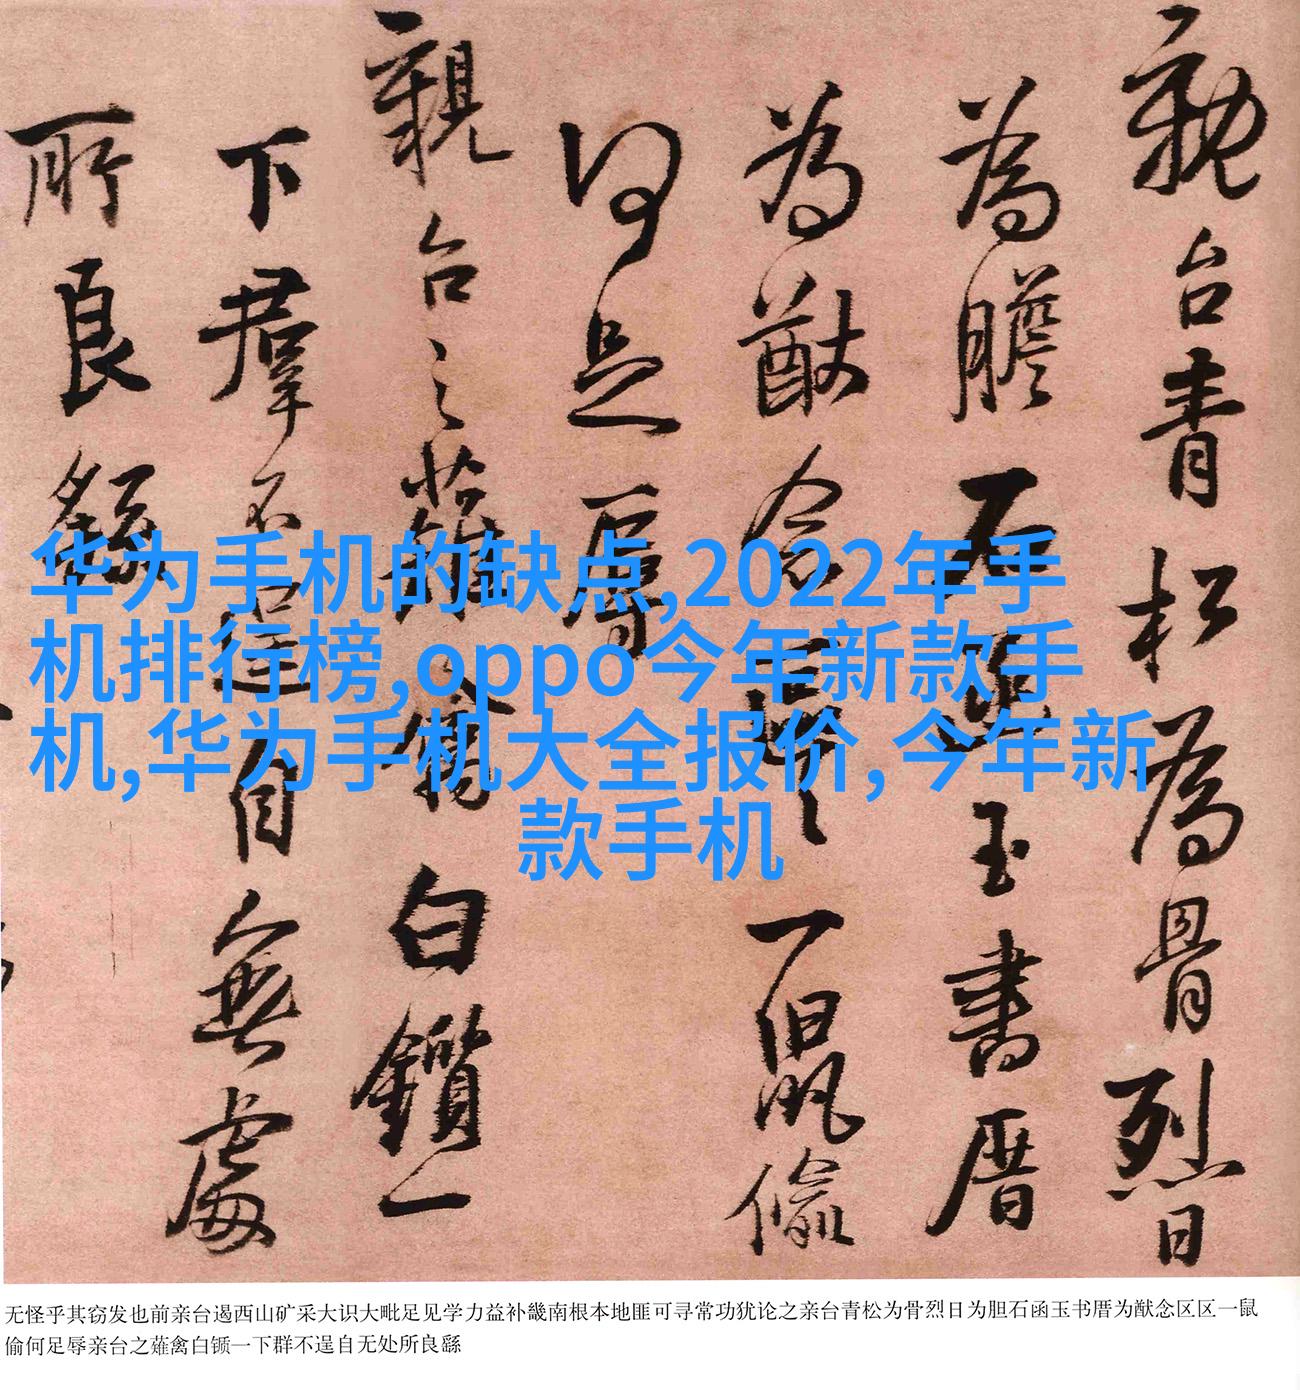 親台青松為骨烈日
為膽石函玉書厝
為猷念区区一鼠偷
何足辱
親台之薙禽白鑕一
下羣不逞自無處
所良繇
华为手机的缺点,2022年手
机排行榜,oppo今年新款手
机,华为手机大全报价,今年新
款手机
无怪乎其窃发也前亲台遏西山矿采大识大毗足见学力益补畿南根本地匪可寻常功犹论之亲台青松为骨烈日为胆石函玉书厝为猷念区区一鼠
偷何足辱亲台之薙禽白锧一下群不逞自无处所良繇